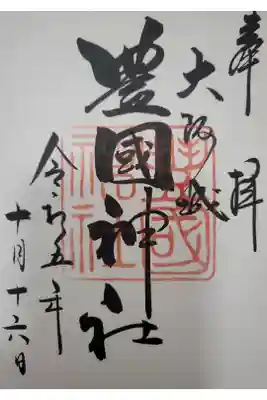 奉拝
大阪城
豊國神社
令和五年
十月十六日